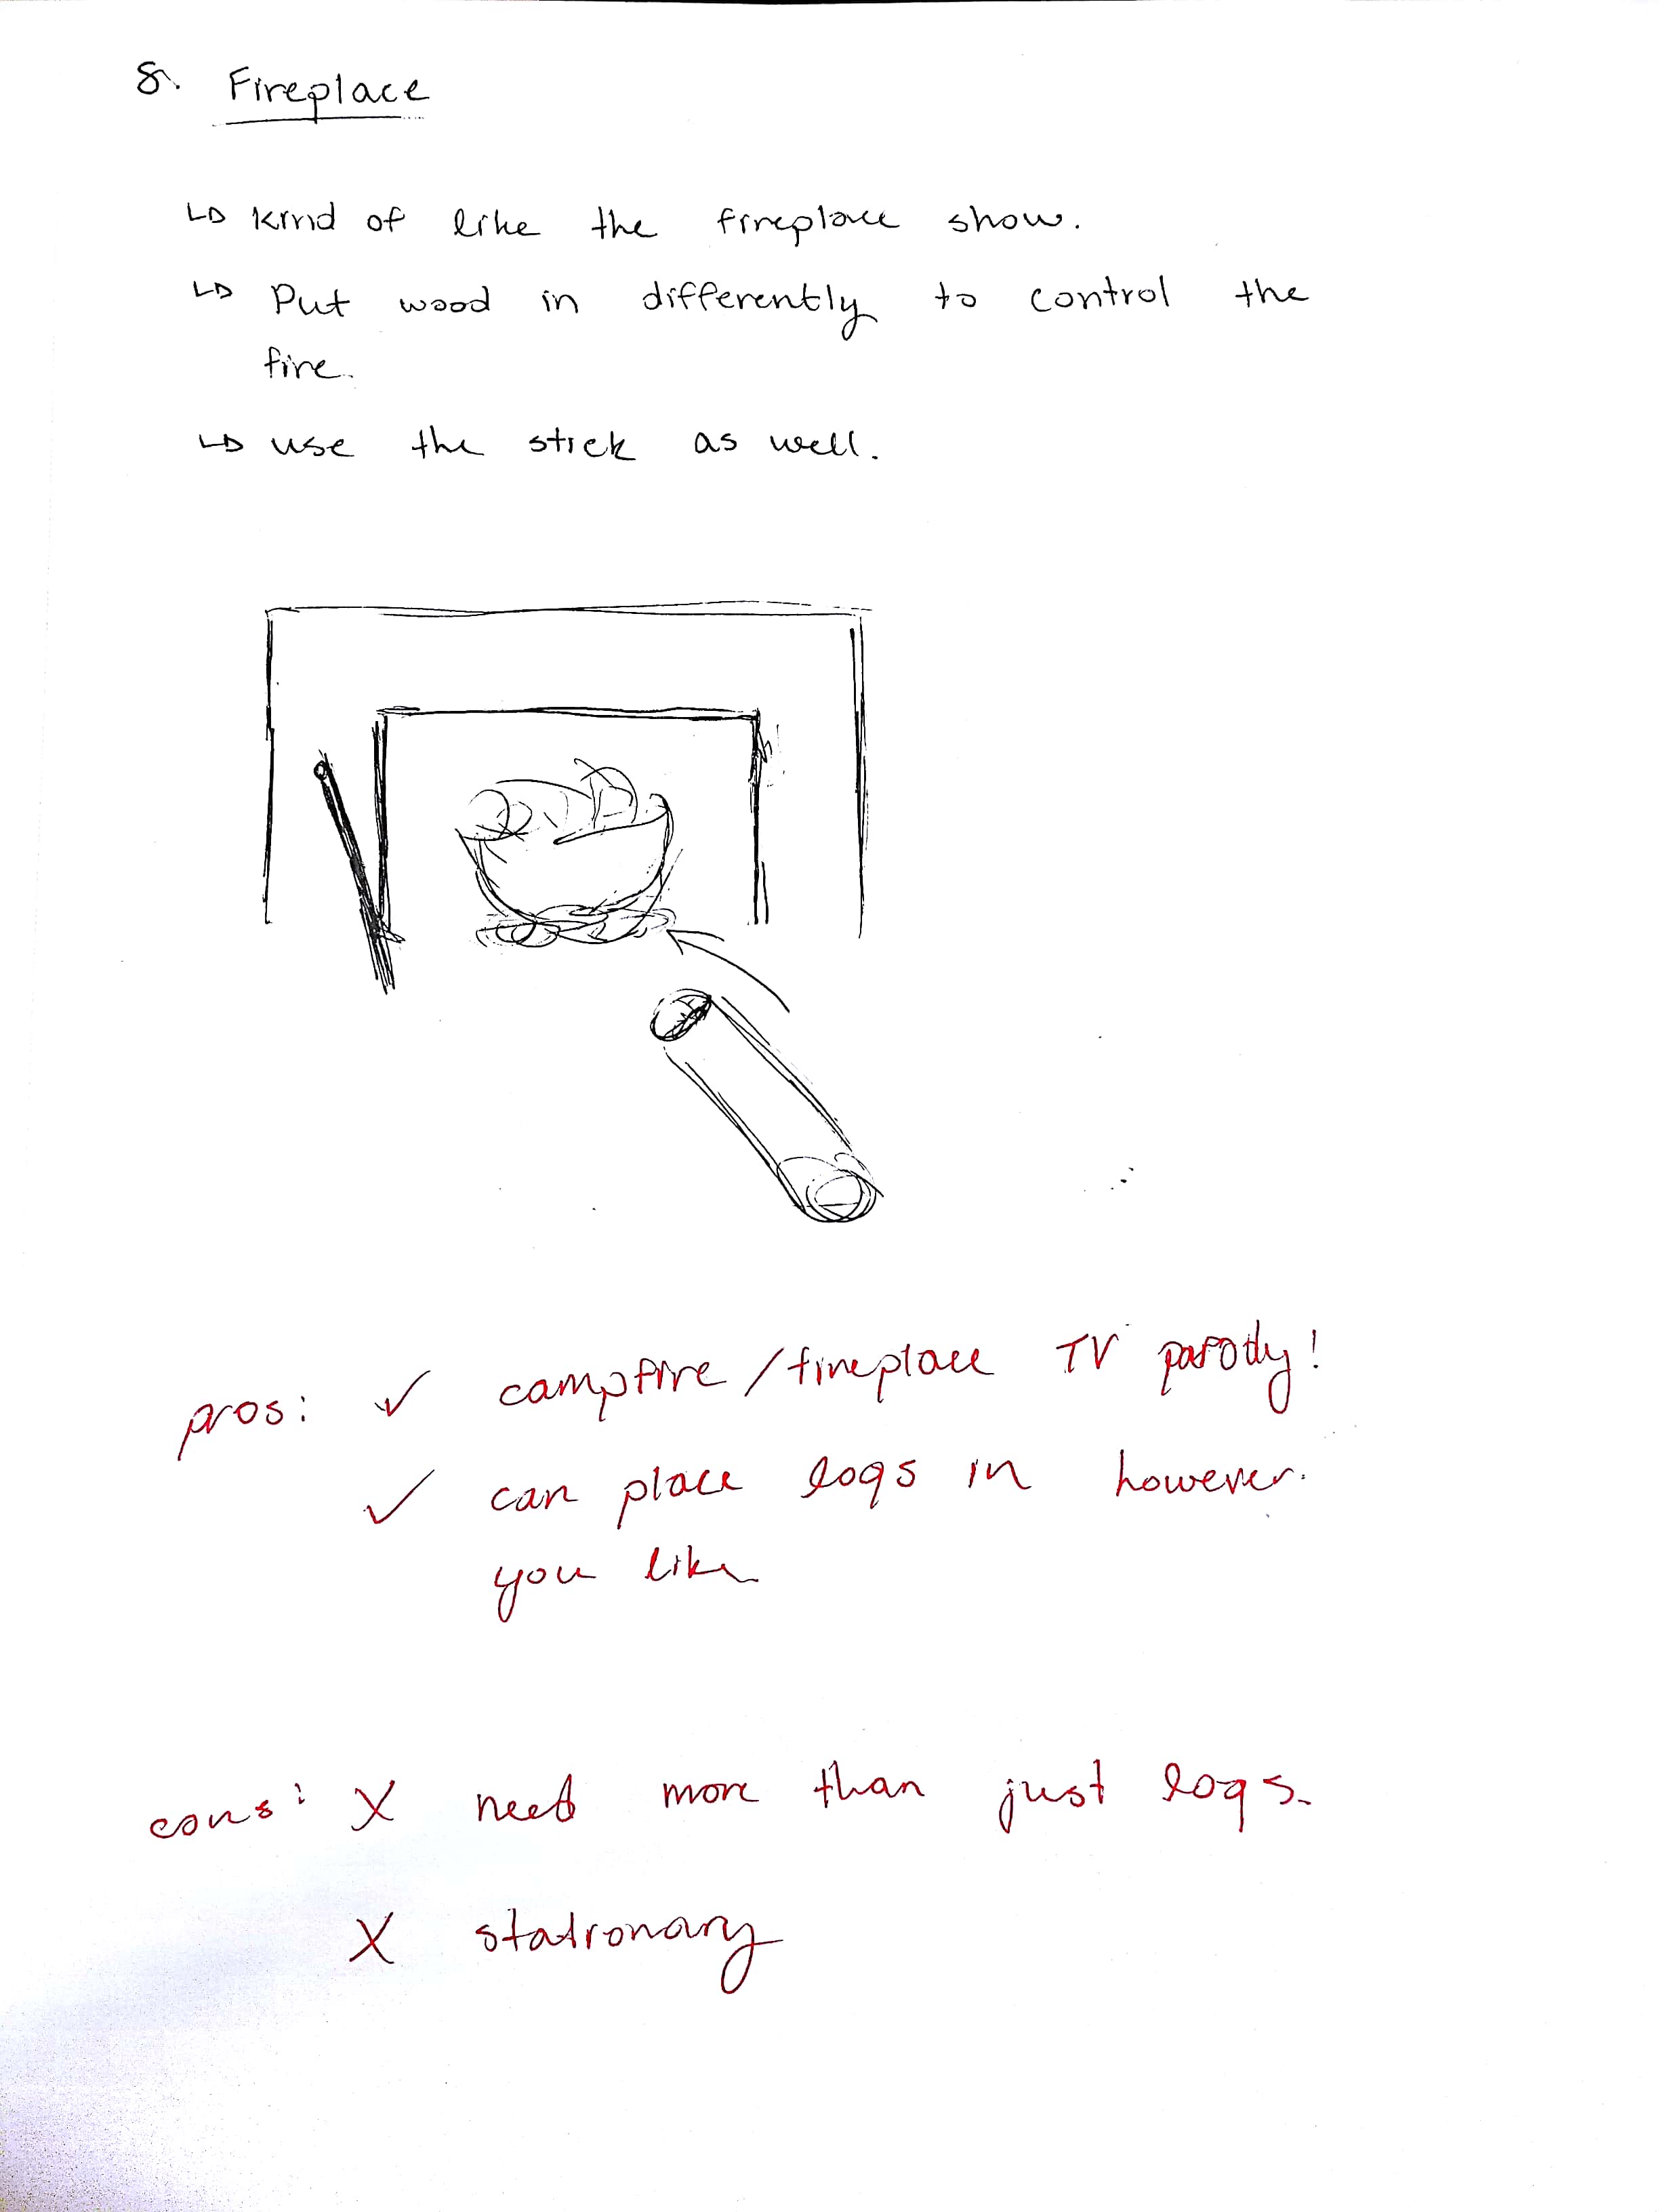 8. Fireplace
↳ kind of like the fireplace show.
↳ Put wood in differently to control the
fire.
↳ use the stick as well.
pros: ✓ campfire/fireplace TV parody!
✓ can place logs in however.
you like
cons: X need more than just logs.
X stationary